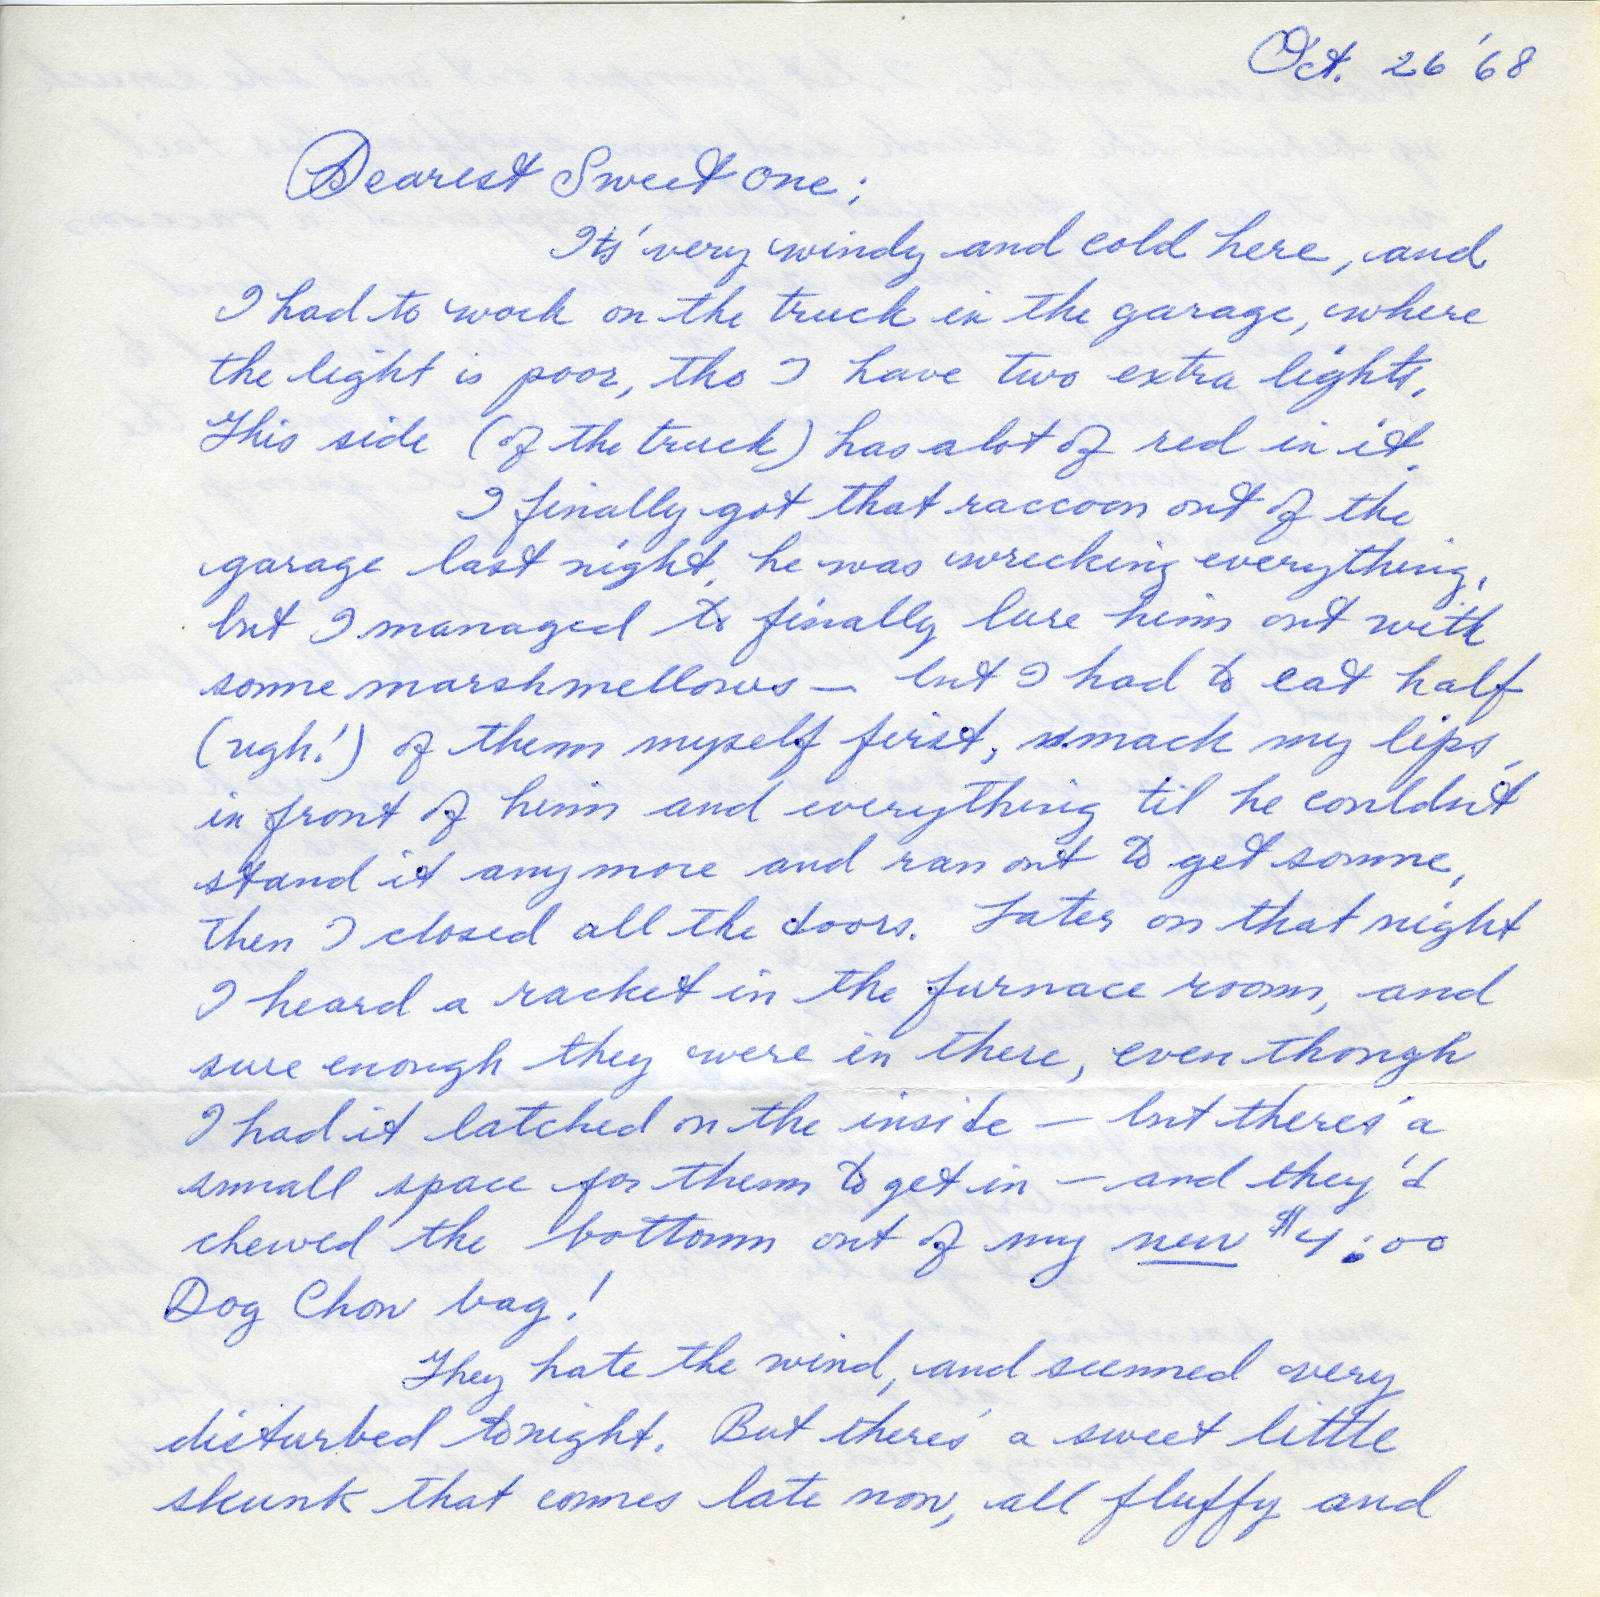 Oct. 26 '68
Dearest Sweet one;
Its' very windy and cold here, and
I had to work on the truck in the garage, where
the light is poor, tho I have two extra lights.
This side (of the truck) has a lot of red in it.
I finally got that raccoon out of the
garage last night, he was wrecking everything,
but I managed to finally lure him out with
some marshmellows — but I had to eat half
(ugh!) of them myself first, smack my lips,
in front of him and everything til he couldn't
stand it anymore and ran out to get some,
then I closed all the doors. Later on that night
I heard a racket in the furnace room, and
sure enough they were in there, even though
I had it latched on the inside — but there's a
small space for them to get in — and they'd
chewed the bottom out of my new $4.00
Dog Chow bag!
They hate the wind, and seemed very
disturbed tonight. But there's a sweet little
skunk that comes late now, all fluffy and